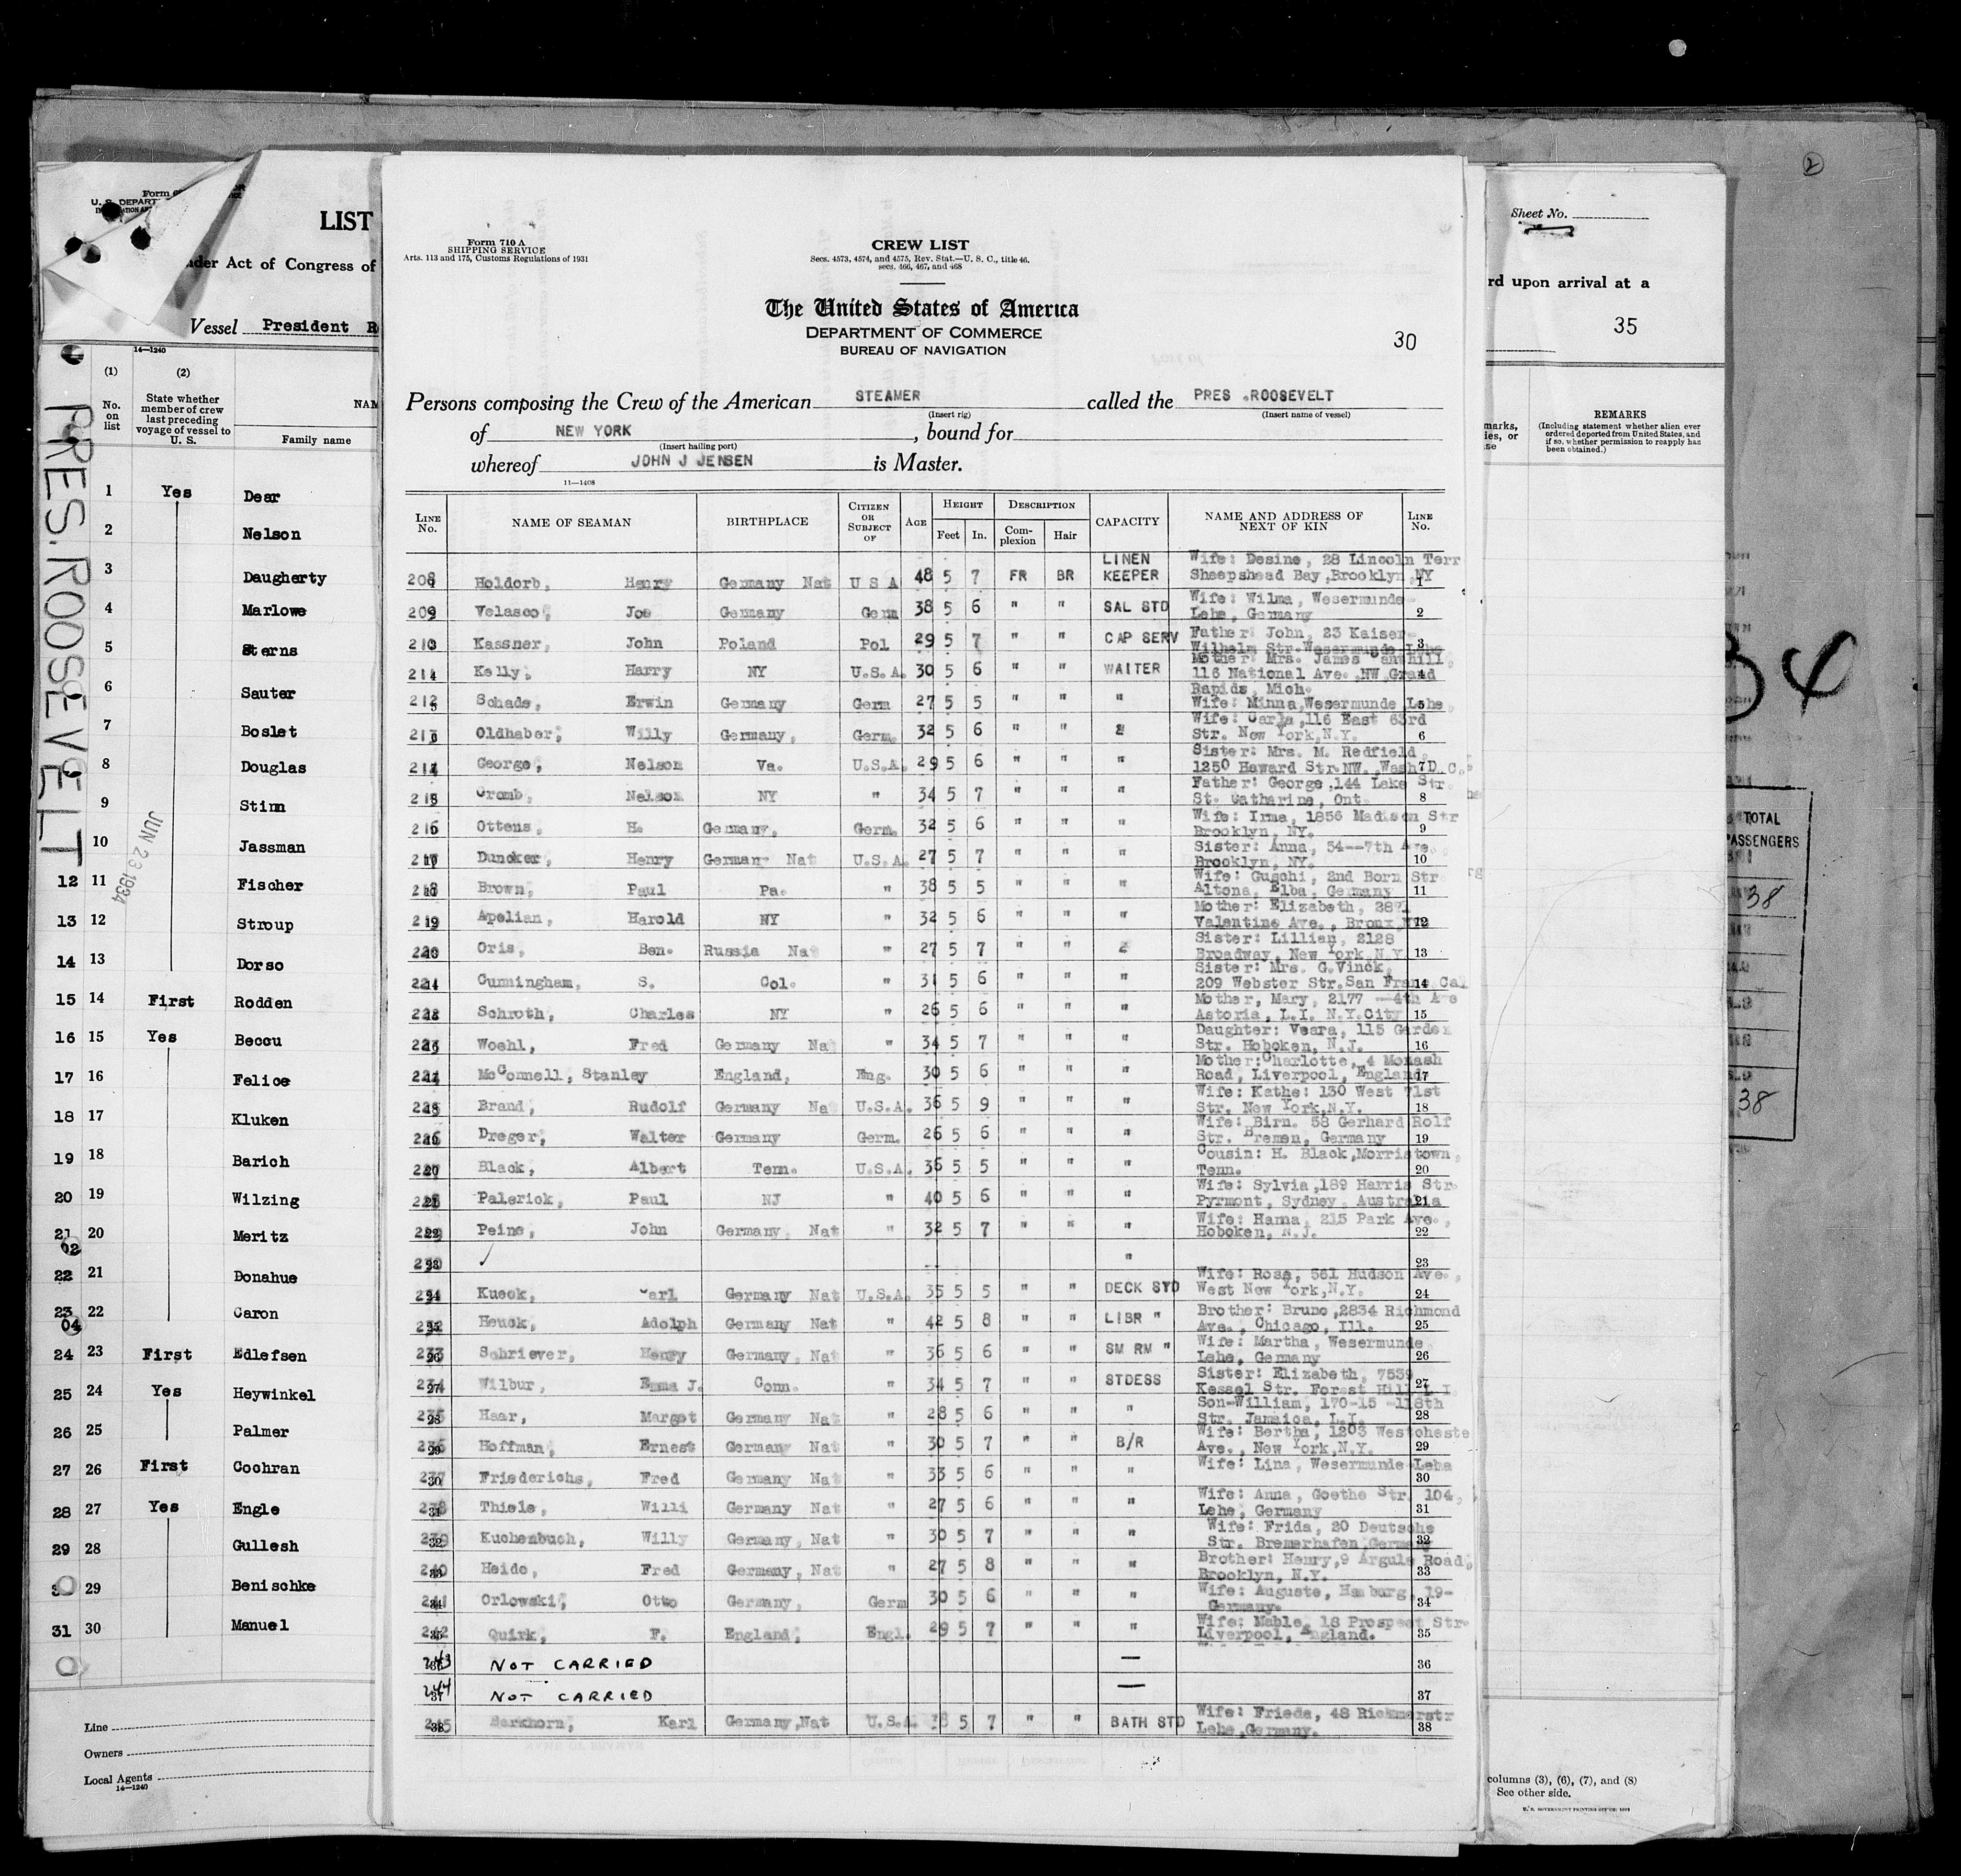 2
Form
U. S. DEPART
LIST
nder Act of Congress of
Vessel President R
14—1240
(1) (2)
No. on list
State whether member of crew last preceding voyage of vessel to U. S.
NAM
Family name
PRES. ROOSEVELT
JUN 23 1934
1 Yes Dear
2 Nelson
3 Daugherty
4 Marlowe
5 Sterns
6 Sauter
7 Boslet
8 Douglas
9 Stinn
10 Jassman
12 11 Fischer
13 12 Stroup
14 13 Dorso
15 14 First Rodden
16 15 Yes Beccu
17 16 Felice
18 17 Kluken
19 18 Barich
20 19 Wilzing
21 20 Meritz
02
22 21 Donahue
23 22 Caron
04
24 23 First Edlefsen
25 24 Yes Heywinkel
26 25 Palmer
27 26 First Cochran
28 27 Yes Engle
29 28 Gullesh
29 Benischke
31 30 Manuel
Line
Owners
Local Agents
14—1240
Form 710 A
SHIPPING SERVICE
Arts. 113 and 175, Customs Regulations of 1931
CREW LIST
Secs. 4573, 4574, and 4575, Rev. Stat.—U. S. C., title 46.
secs. 466, 467, and 468
The United States of America
DEPARTMENT OF COMMERCE
BUREAU OF NAVIGATION
30
Persons composing the Crew of the American STEAMER called the PRES .ROOSEVELT
(Insert rig) (Insert name of vessel)
of NEW YORK, bound for
(Insert hailing port)
whereof JOHN J JENSEN is Master.
11—1408
LINE No. NAME OF SEAMAN BIRTHPLACE CITIZEN OR SUBJECT OF AGE HEIGHT DESCRIPTION CAPACITY NAME AND ADDRESS OF NEXT OF KIN LINE No.
Feet In. Complexion Hair
LINEN Wife: Desine, 28 Lincoln Terr
208 Holdorb, Henry Germany Nat U S A 48 5 7 FR BR KEEPER Sheepshead Bay,Brooklyn,NY 1
Wife: Wilma, Wesermunde
209 Velasco, Joe Germany Germ 38 5 6 " " SAL STD Lehe, Germany 2
Father: John, 23 Kaiser-
210 Kassner, John Poland Pol 29 5 7 " " CAP SERV Wilhelm Str.Wesermunde Lehe 3
Mother: Mrs. James
211 Kelly, Harry NY U.S.A. 30 5 6 " " WAITER 116 National Ave. NW Grand 4
Rapids, Mich.
212 Schade, Erwin Germany Germ 27 5 5 " " " Wife: Minna,Wesermunde Lehe, 5
Wife: Carla,116 East 63rd
213 Oldhaber, Willy Germany, Germ. 32 5 6 " " Str. New York,N.Y. 6
Sister: Mrs. M. Redfield,
214 George, Nelson Va. U.S.A. 29 5 6 " " " 1250 Haward Str.NW.,Wash D.C. 7
Father: George,144 Lake Str.
215 Cromb, Nelson NY " 34 5 7 " " " St. Catharine, Ont. 8
Wife: Irma, 1856 Madison Str
216 Ottens, H. Germany, Germ. 32 5 6 " " " Brooklyn, NY. 9
Sister: Anna, 54--7th Ave.
217 Duncker, Henry Germany Nat U.S.A. 27 5 7 " " " Brooklyn, NY. 10
Wife: Guschi, 2nd Born Str.
218 Brown, Paul Pa. " 38 5 5 " " " Altona, Elba, Germany 11
Mother: Elizabeth, 2871
219 Apelian, Harold NY " 32 5 6 " " " Valentine Ave., Bronx 12
Sister: Lillian, 2128
220 Oris, Ben. Russia Nat " 27 5 7 " " Broadway, New York N.Y. 13
Sister: Mrs. G.Vinck,
221 Cunningham, S. Col. " 31 5 6 " " " 209 Webster Str.San Fran. Cal 14
Mother, Mary, 2177 --4th Ave
222 Schroth, Charles NY " 26 5 6 " " " Astoria, L.I. N.Y.City 15
Daughter: Veara, 115 Garden
223 Woehl, Fred Germany Nat " 34 5 7 " " " Str. Hoboken, N.J. 16
Mother:Charlotte, 4 Monash
224 McConnell, Stanley England, Eng. 30 5 6 " " " Road, Liverpool, England 17
Wife: Kathe: 130 West 71st
225 Brand, Rudolf Germany Nat U.S.A. 36 5 9 " " " Str. New York,N.Y. 18
Wife: Birn. 58 Gerhard Rolf
226 Dreger, Walter Germany Germ. 26 5 6 " " " Str. Bremen, Germany 19
Cousin: H. Black,Morristown,
227 Black, Albert Tenn. U.S.A. 36 5 5 " " " Tenn. 20
Wife: Sylvia,189 Harris Str.
228 Palerick, Paul NJ " 40 5 6 " " " Pyrmont, Sydney, Australia 21
Wife: Hanna, 215 Park Ave.,
229 Peine, John Germany Nat " 32 5 7 " " " Hoboken, N.J. 22
230 " 23
Wife: Rosa, 561 Hudson Ave.,
231 Kueck, Carl Germany Nat U.S.A. 35 5 5 " " DECK STD West New York,N.Y. 24
Brother: Bruno,2834 Richmond
232 Heuck, Adolph Germany Nat " 42 5 8 " " LIBR " Ave., Chicago, Ill. 25
Wife: Martha, Wesermunde
233 Schriever, Henry Germany, Nat " 36 5 6 " " SM RM " Lehe, Germany 26
Sister: Elizabeth, 7539
234 Wilbur, Emma J. Conn. " 34 5 7 " " STDESS Kessel Str. Forest Hill L.I. 27
Son-William, 170-15 -118th
235 Haar, Margot Germany Nat " 28 5 6 " " " Str. Jamaica, L.I. 28
Wife: Bertha, 1203 Westcheste
236 Hoffman, Ernest Germany Nat " 30 5 7 " " B/R Ave., New York,N.Y. 29
Wife: Lina, Wesermunde-Lehe
237 Friederichs, Fred Germany Nat " 33 5 6 " " " 30
Wife: Anna, Goethe Str. 104,
238 Thiele, Willi Germany Nat " 27 5 6 " " " Lehe, Germany 31
Wife: Frida, 20 Deutsche
239 Kuchenbuch, Willy Germany, Nat " 30 5 7 " " " Str. Bremerhafen,Germany 32
Brother: Henry,9 Argule Road,
240 Heide, Fred Germany, Nat " 27 5 8 " " " Brooklyn, N.Y. 33
Wife: Auguste, Hamburg, 19-
241 Orlowski, Otto Germany, Germ 30 5 6 " " " Germany. 34
Wife: Mable, 18 Prospect Str.
242 Quirk, F. England, Engl. 29 5 7 " " " Liverpool, England. 35
243 NOT CARRIED — 36
244 NOT CARRIED — 37
Wife: Frieda, 48 Rickmerstr
245 Merkhorn, Karl Germany,Nat U.S.A. 38 5 7 " " BATH STD Lehe,Germany. 38
Sheet No.
rd upon arrival at a
35
marks,
ies, or
se
REMARKS
(Including statement whether alien ever ordered deported from United States, and if so, whether permission to reapply has been obtained.)
34
TOTAL
PASSENGERS
38
38
columns (3), (6), (7), and (8)
See other side.
U. S. GOVERNMENT PRINTING OFFICE: 1931